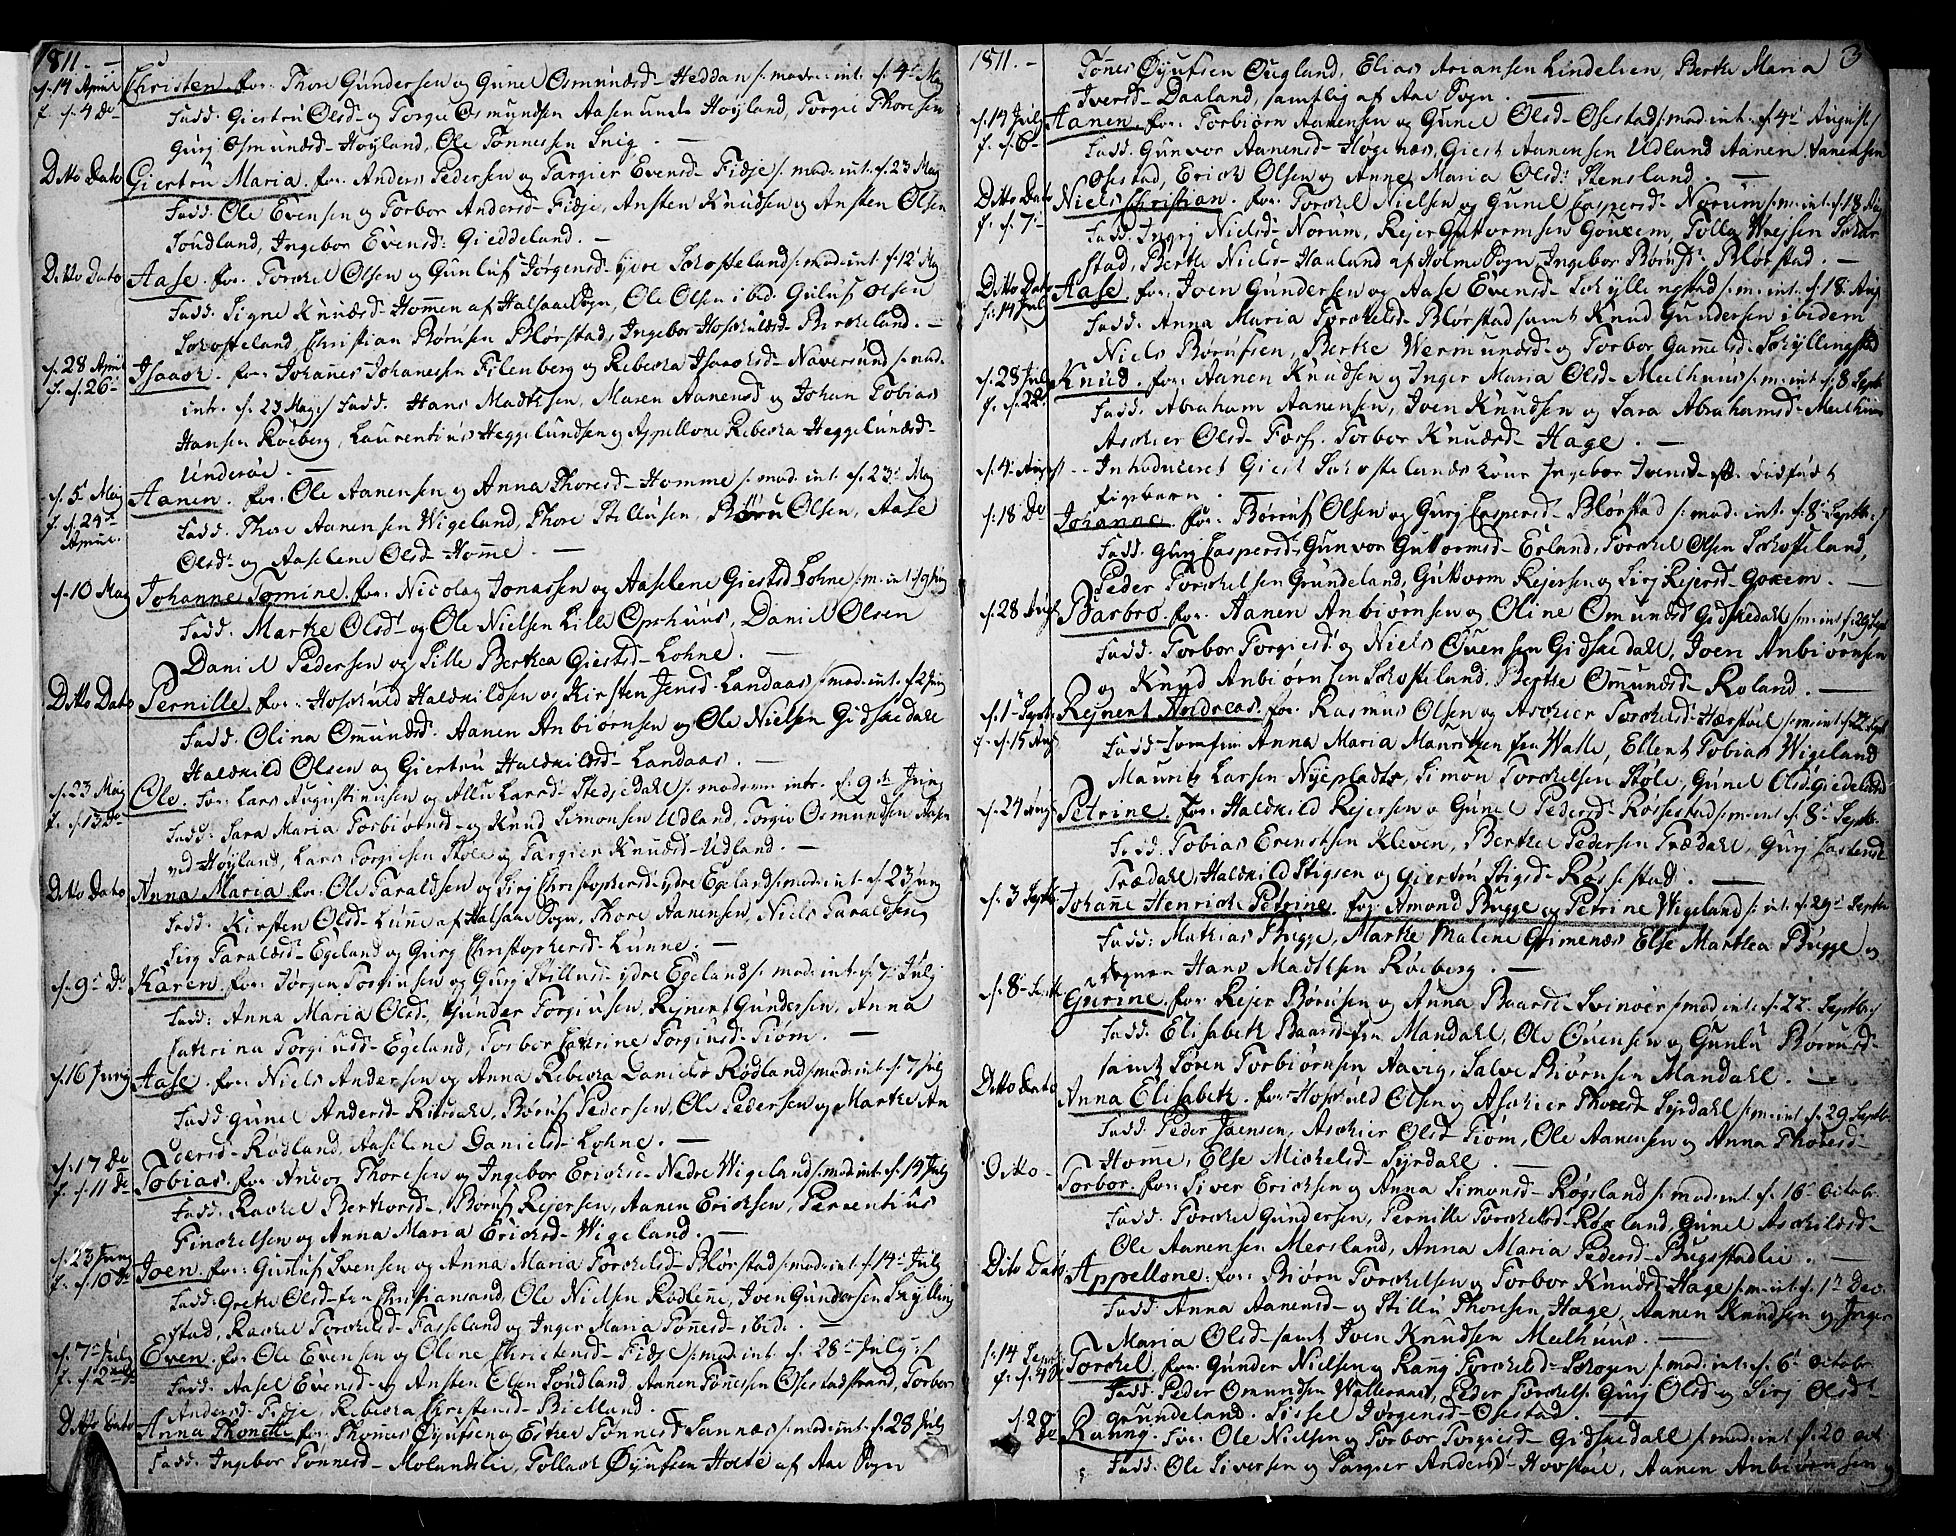 1811.
d. 14 April Christen. for: Thore Gundersen og Gunel Osmundsd- Heddan /: mod: int: d. 4de Maj
f. d. 4 Do Fadd: Giertru Olsd- og Torgie Osmundsen Aasen unde Høyland, Torgie Thoresen
Gurj Osmundsd- Høyland, Ole Tønnesen Snig. —
Ditto Dato Giertru Maria. for: Anders Pedersen og Targier Evensd- Fidje /: mod: int: d. 23 Maj
Fadd: Ole Evensen og Torbor Andersd- Fidje, Ansten Knudsen og Ansten Olsen
Soudland, Ingebor Evensd: Gieddeland. —
Ditto Dato Aase. for: Torckel Olsen og Gunluf Jørgensd- ydre Schofteland /: mod: int: d. 12 Maj
Fadd: Signe Knudsd- Homen af Halsaa Sogn, Ole Olsen ibid. Guluf Olsen
Schofteland, Christian Børusen Blørstad, Ingebor Hoskuldsd- Birckeland. —
d. 28 April Isaach. for: Johannes Johanesen Filenberg og Rebecka Isaachsd- Naversund /: mod:
f. d. 26 int: d. 23 Maj / Fadd: Hans Madthsen, Maren Aanensd og Johan Tobias
Hansen Røeberg, Laurentius Heggelundsen og Appellone Rebecka Heggelundsd-
Underøe. —
d. 5 Maj Aanen. for: Ole Aanensen og Anna Thoresd- Homme /: mod: int: d. 23 Maj
f. d. 24de Fadd: Thore Aanensen Wigeland, Thore Stillusen, Børu Olsen, Aase
April. Olsd- og Aaselene Olsd- Home. —
d. 10 Maj Johanne Tomine. for: Nicolay Jonassen og Aaselene Giertsd- Lohne /: m: int: d. 9 Junj
Fadd: Marthe Olsd- og Ole Nielsen Lille Ophuus, Daniel Olsen
Daniel Pedersen og Sille Berthea Giertsd- Lohne. —
Ditto Dato Pernille. for: Hoskuld Haldkildsen og Kirsten Jensd- Landaas /: mod: int: d. 2 Junj
Fadd: Olina Omundsd. Aanen Anbiørnsen og Ole Nielsen Gidskedahl
Haldkild Olsen og Giertru Haldkildsd- Landaas. —
d. 23 Maj Ole. for: Lars Augustinusen og Allu Larsd- Stedjedahl /: moderen intr. d. 9de Junj
f. d. 13 Do Fadd: Sara Maria Torbiørnsd- og Knud Simonsen Udland. Torgie Osmundsen Aasen
ud Høyland, Lars Torgiesen Støle og Targier Knudsd- Udland. —
Ditto Dato Anna Maria. for: Ole Taraldsen og Sirj Christophersd- ydre Egeland /: mod: int: d. 23 Junj
Fadd: Kirsten Olsd- Lunne af Halsaa Sogn, Thore Aanensen, Niels Taraldsen
Sirj Taraldsd- Egeland og Gurj Christophersd- Lunne. —
d. 9de Do Karen. for: Jørgen Torfinsen og Gurj Stillusd- ydre Egeland /: mod: int: d. 7 Julj
Fadd: Anna Maria Olsd-, Gunder Torgiusen, Rejnert Gundersen, Anna
Cathrina Torgiusd- Egeland, Torbor Cathrine Torgiusd- Tiøm. —
d. 16 Junj Aase. for: Niels Andersen og Anna Rebecka Danielsd Rødland /: mod: int: d. 7 Julj
Fadd: Gunel Andersd- Børuf Pedersen, Ole Pedersen og Marthe An
dersd- Rødland, Aaselene Danielsd- Lohne. —
d. 17 Do Tobias. for: Anbor Thoresen og Ingebor Ericksd- Nedre Wigeland /: mod: int: d. 14 Julj
f. d. 11 Do Fadd: Rackel Berthorsd-, Børuf Rejersen, Aanen Ericksen, Perventius
Finckelsen og Anna Maria Ericksd- Wigeland. —
d. 23 Junj Joen. for: Gunnuf Svensen og Anna Maria Torckelsd- Blørstad /: mod: int: d. 14 Julj
f. d. 10 Do Fadd: Grethe Olsd- fra Christiansand, Ole Nielsen Rødlene, Joen Gundersen Skylling
stad, Rackel Torckelsd- Fasseland og Inger Maria Tønnesd- ibid: —
d. 7de Julj Even. for: Ole Evensen og Olene Christensd- Fidje /: mod: int: d. 28de July :/
f. d. 2den Do Fadd: Aasel Evensd- og Ansten Olsen Soudland, Aanen Tønnesen Osestadstrand, Torbor
Andersd- Fidje, Rebecka Christensd- Bielland.
Ditto Dato Anna Thonette for: Thomas Øyufsen og Ester Tønnesd- Sannæs /: mod: int: d. 28 July
Fadd: Ingebor Tønnesd- Molandslie, Tollack Øyufsen Holte af Aae Sogn
1811. Tønnes Øyufsen Øugland, Elias Ariansen Lindelien, Berthe Maria 3
Iversd- Daaland, samtlig af Aae Sogn. —
d. 14 July Aanen. for: Torbiørn Aanensen og Gunel Olsd- Osestad /: mod: int: d. 4de August /
f. d. 6 Fadd: Gunvor Aanensd- Høgenæs, Giert Aanensen Udland Aanen Aanensen
Osestad, Erick Olsen og Anne Maria Olsd: Stensland. —
Ditto Dato Niels Christian. for: Torckel Nielsen og Gunel Caspersd- Norum /: m: int: d. 18 Aug
f. d. 7 Fadd: Ingrj Nielsd- Norum, Rejer Guttormsen Gouxem, Tolla Schar
stad, Berthe Nielsd- Haaland af Holme Sogn, Ingebor Børusd- Blørstad. —
Ditto Dato Aase. for: Joen Gundersen og Aase Evensd- Schyllingstad /: m: int: d. 18 Aug
f. 14 Jul Fadd: Anna Maria Torckelsd- Blørstad samt Knud Gundersen ibidem
Niels Børufsen, Berthe Wermundsd- og Torbor Gammelsd- Schyllingstad
d. 28 Jul Knud. for: Aanen Knudsen og Inger Maria Olsd- Mælhuus /: m: int: d. 8 Septb
f. d. 22 Fadd: Abraham Aanensen, Joen Knudsen og Sara Abrahamsd- Mælhuus
Asckier Olsd- Foss. Torbor Knudsd- Hage. —
d. 4 August Introduceret Giert Schoftelands Kone Ingebor Ivensd- eft: dødfødt
Pigebarn. —
d. 18 Do Johanne. for: Børuf Olsen og Gurj Caspersd- Blørstad /: mod: int: d. 8 Septb: /
Fadd: Gurj Caspersd- Gunvor Guttormsd- Erland, Torckel Olsen Schofteland,
Peder Torckelsen Grundeland, Guttorm Rejersen og Sirj Rejersd- Goxem. —
d. 28 Aug Barbro. for: Aanen Anbiørnsen og Oline Omundsd Gidskedahl /: m: int: d. 29 Sept
Fadd: Torbor Torgiesd- og Niels Øvensen Gidskedahl, Joen Anbiørnsen
og Knud Anbiørnsen Schofteland, Berthe Omundsd- Roland. —
d. 1 Septb Rejnert Andreas. for: Rasmus Olsen og Asckier Torckelsd- Harstøel /: m: int: d. 22 Sept
f. d. 15 Aug Fadd: Jomfru Anna Maria Mauritzen fra Walle, Ellert Tobias Wigeland
Mauritz Larsen Nyepladts, Simon Torckelsen Støle, Gunel Olsd- Giedeland
d. 24 Aug Petrine. for: Haldkild Rejersen og Gunel Pedersd- Rossestad /: m: int: d. 8 Septb.
Fadd: Tobias Erentsen Kleven, Berthel Pedersen Trædahl, Gurj Castensd
Trædahl, Haldkild Stigsen og Giertru Stigsd- Røssestad. —
d. 3 Septb Johanne Henricke Petrine. for: Amond Bugge og Petrine Wigeland /: int: d. 29 Septb
Fadd: Mathias Bugge, Marthe Malene Grimenæs Else Marthea Bugge og
Degnen Hans Madthsen Røeberg. —
d. 8 Septb Gurine. for: Rejer Børusen og Anna Baardsd- Svinøer /: mod: int: d. 22 Septbr /
Fadd: Elisabeth Baardsd- fra Mandahl, Ole Øvensen og Gunlu Børrusd-
samt Søren Torbiørnsen Aavig, Salve Biørnsen Mandahl. —
Ditto Dato Anna Elisabeth. for: Hoskuld Olsen og Asckier Thoresd- Syrdahl /: m: int: d. 29 Septb
Fadd: Peder Joensen, Asckier Olsd- Tiøm, Ole Aanensen og Anna Thoresd-
Home, Else Mickelsd- Syrdahl. —
Ditto Torbor. for: Siver Ericksen og Anna Simonsd- Røgsland /: mod: int: d. 16 Octobr.
Fadd: Torckel Gundersen, Pernille Torckelsd- Røxland, Gunel Asckildsd-
Ole Aanensen Mersland, Anna Maria Pedersd- Bugstadlie. —
Dito Dato Appellone. for: Biørn Torckelsen og Torbor Knudsd- Hage /: m: int: d. 1 Dec.
Fadd: Anna Aanensd- og Stillu Thoresen Hage, Aanen Knudsen og Inger
Maria Olsd- samt Joen Knudsen Mælhuus. —
d. 14 Septb Torckel. for: Gunder Nielsen og Rang Torckelsd- Schogen /: mod: int: d. 6 Octobr
f. d. 4 Do Fadd: Peder Omundsen Walleraas, Peder Torckels: Gurj Olsd og Sirj Olsd-
Grundeland. Sissel Jørgensd- Osestad.
d. 28 Do Ranng. for: Ole Nielsen og Torbor Torgiesd- Gidskedahl /: mod: int: d. 20 Oct
Fadd: Ole Siversen og Targier Andersd- Hovstøel, Aanen Anbiørnsen og